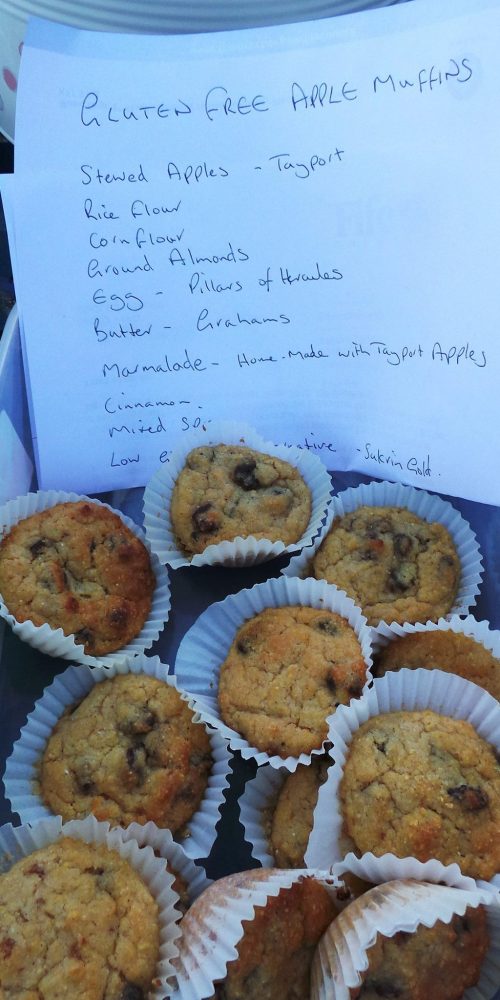 GLUTEN FREE APPLE MUFFINS
Stewed Apples - Tayport
Rice flour
Cornflour
Ground Almonds
Egg - Pillars of Hercules
Butter - Grahams
Marmalade - Home-Made with Tayport Apples
Cinnamon.
Mixed
Low - Sukrin Gold.